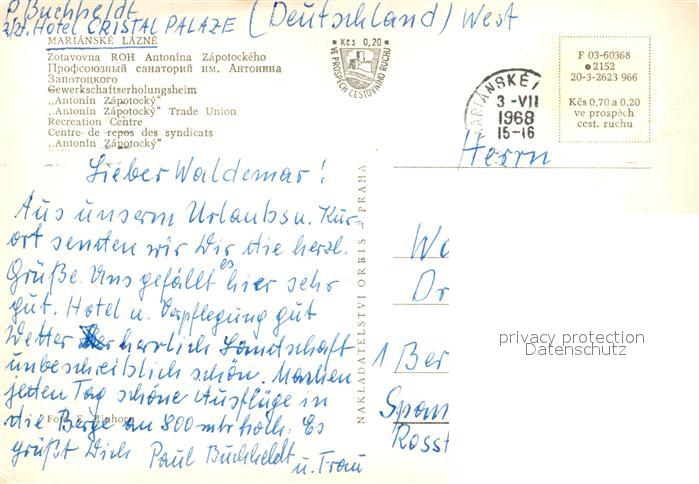 P. Buchheldt
z/Zt. Hotel CRISTAL PALAZE (Deutschland) West
MARIÁNSKÉ LÁZNĚ
Zotavovna ROH Antonína Zápotockého
Профсоюзный санаторий им. Антонина
Запотоцкого
Gewerkschaftserholungsheim
„Antonín Zápotocký"
„Antonín Zápotocký" Trade Union
Recreation Centre
Centre de repos des syndicats
„Antonín Zápotocký"
Kčs 0,20
VE PROSPĚCH CESTOVNÍHO RUCHU
MARIÁNSKÉ
3 -VII
1968
15-16
F 03-60368
2152
20-3-2623 966
Kčs 0,70 a 0,20
ve prospěch
cest. ruchu
Lieber Waldemar!
Aus unserm Urlaubs u. Kur-
ort senden wir Dir die herzl.
Grüße. Uns gefällt es hier sehr
gut. Hotel u. Verpflegung gut
Wetter herrlich Landschaft
unbeschreiblich schön. Machen
jeden Tag schöne Ausflüge in
die Berge an 800 mtr hoch. Es
grüßt Dich Paul Buchheldt
u. Frau
Foto E. Einhorn
NAKLADATELSTVÍ ORBIS - PRAHA
Herrn
Wa
Dr
1 Ber
Span
Rosst
privacy protection
Datenschutz